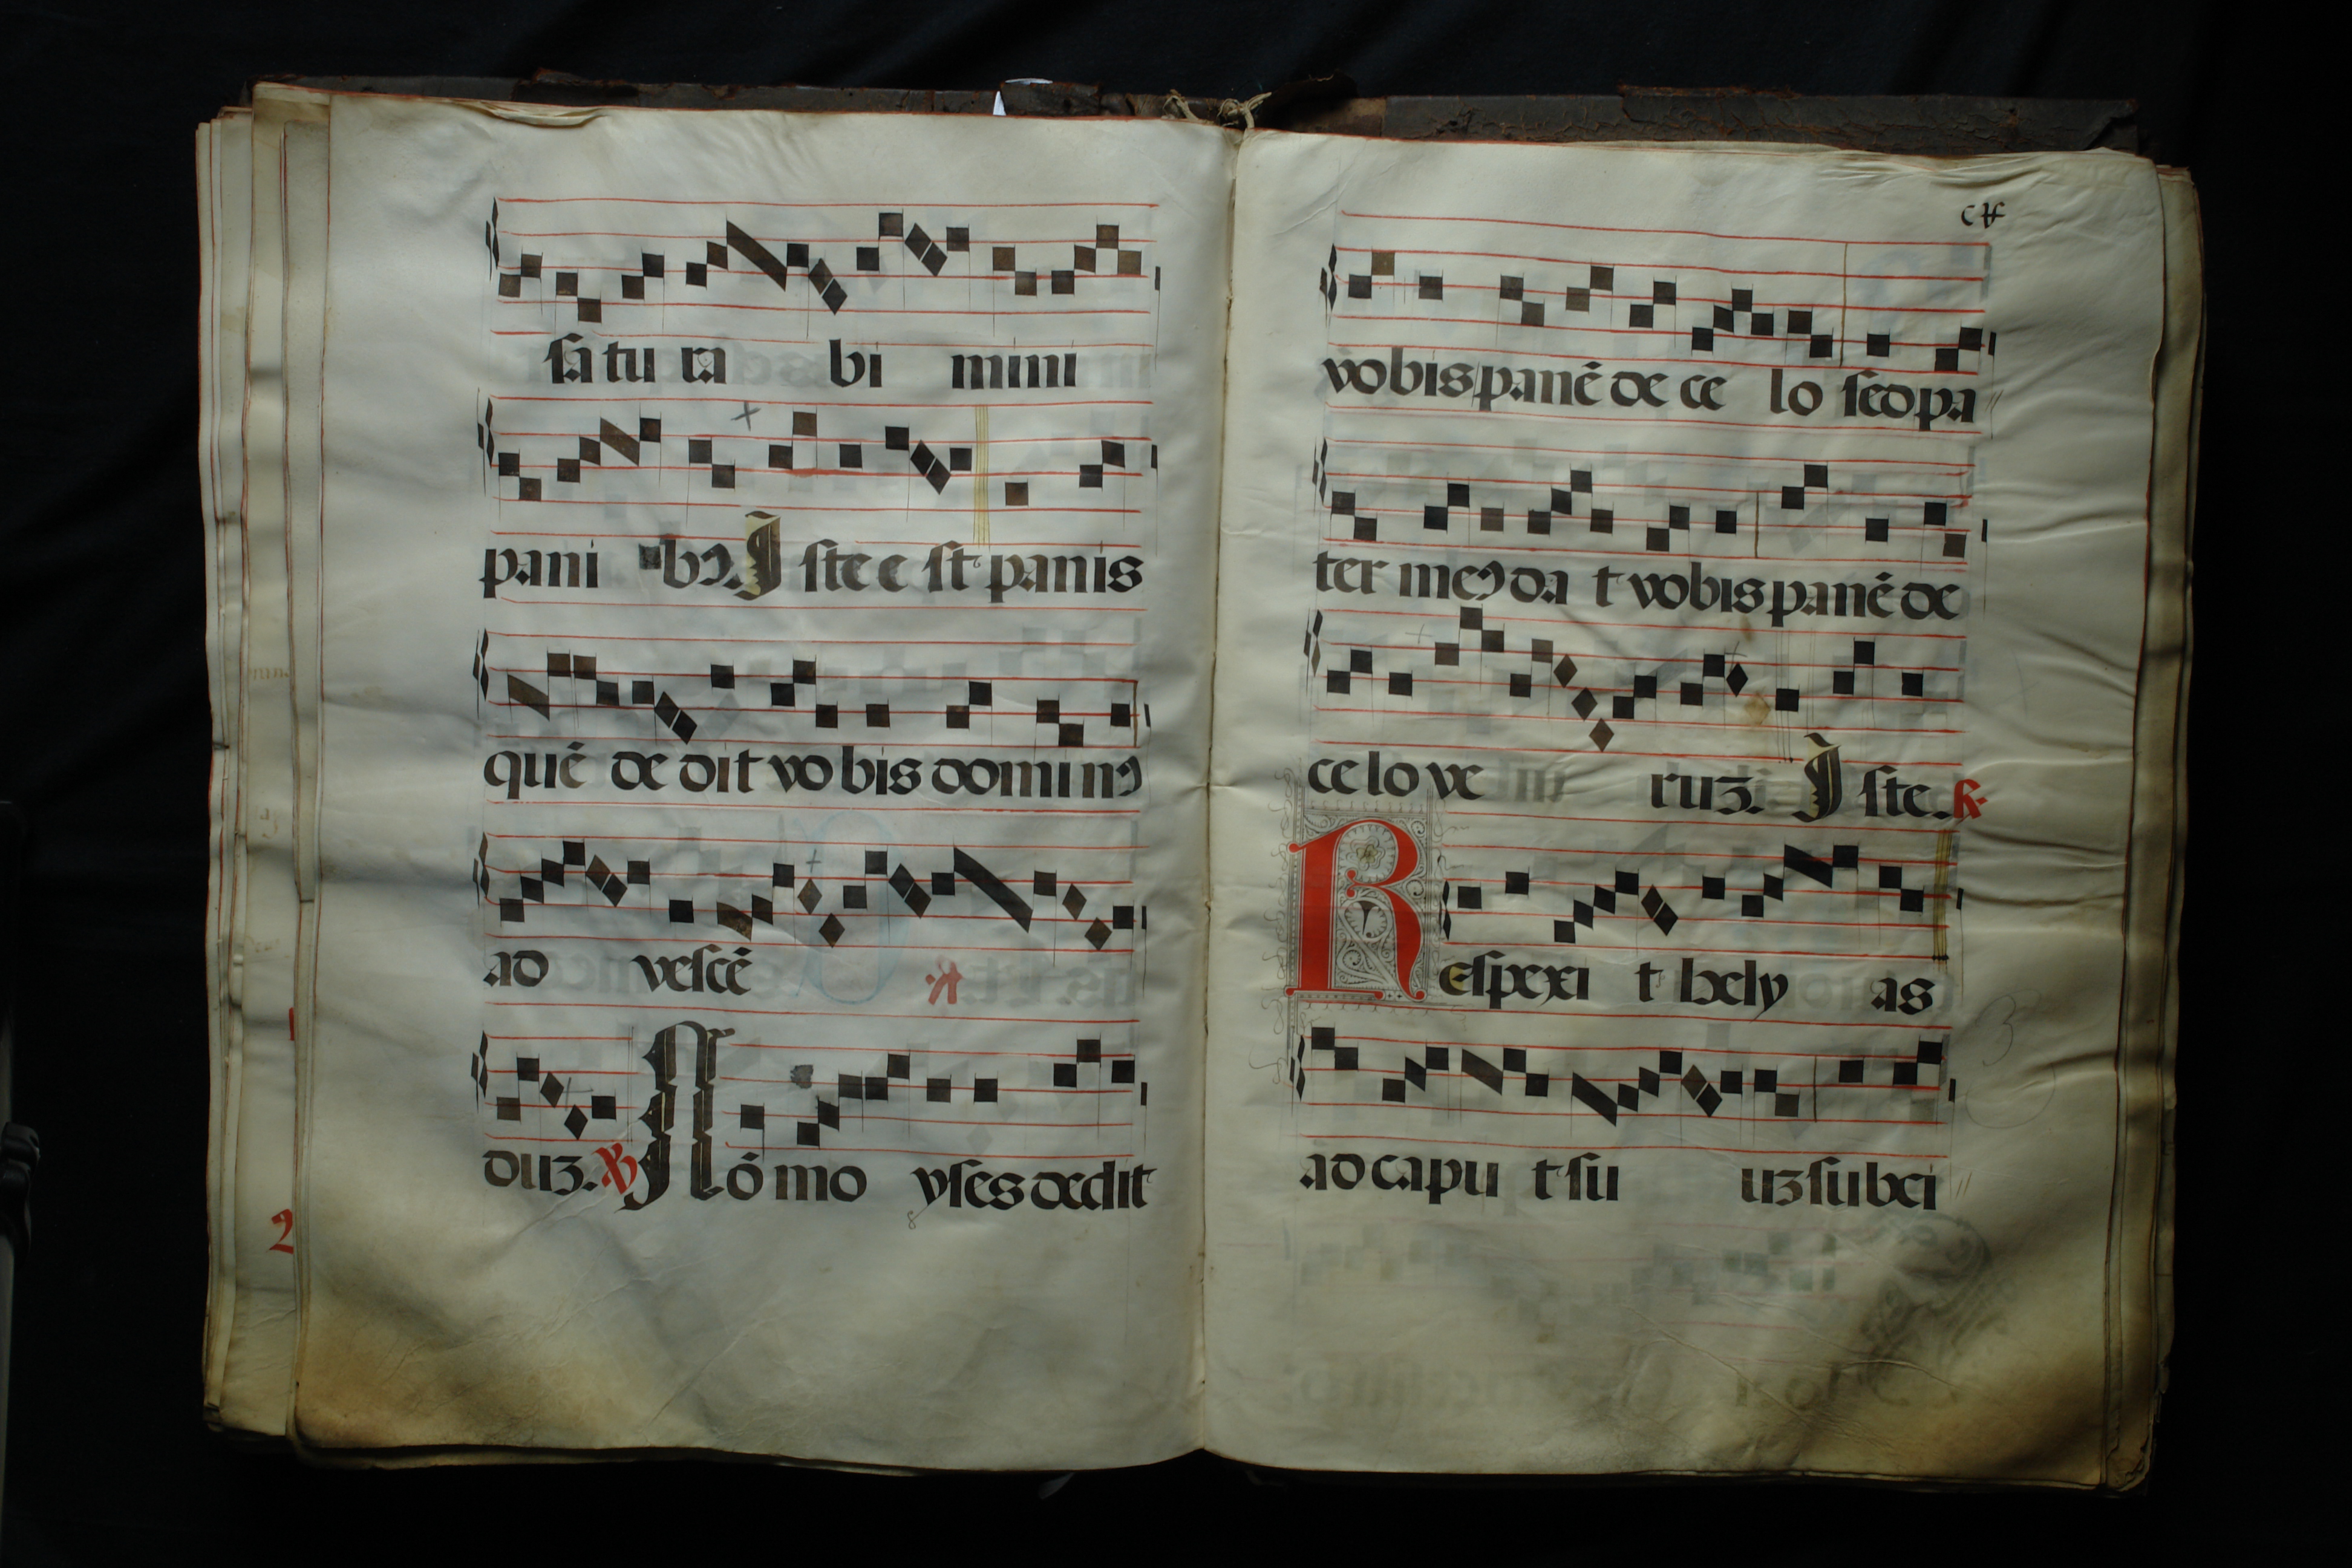 sa tu ra bi mini
pani bꝰ. I ste e st panis
quē de dit vo bis domi nꝰ
ad vescē
duꝫ. ℣ Nō mo yses dedit
2
vobis panē de ce lo sed pa
ter meꝰ da t vobis panē de
celo ve ruꝫ. I ste. ℟
Respexi t hely as
ad capu t su uꝫ subci